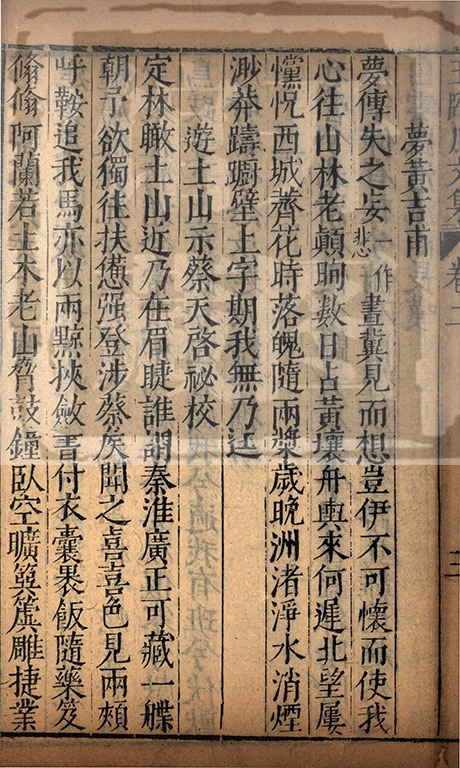 王臨川文集 卷二 三
夢黃吉甫
夢傳失之妄一作悲晝冀見而想豈伊不可懷而使我
心往山林老顛眴數日占黃壤舟輿來何遲北望屢
懭怳西城薺花時落魄隨兩槳歲晚洲渚淨水消煙
渺莽躊躕壁上字期我無乃迋
遊土山示蔡天啓祕校
定林瞰土山近乃在眉睫誰謂秦淮廣正可藏一艓
朝予欲獨往扶憊强登涉蔡侯聞之喜喜色見兩頰
呼鞍追我馬亦以兩黥挾斂書付衣囊裹飯隨藥笈
翛翛阿蘭若土木老山脅鼓鐘臥空曠簨簴雕捷業